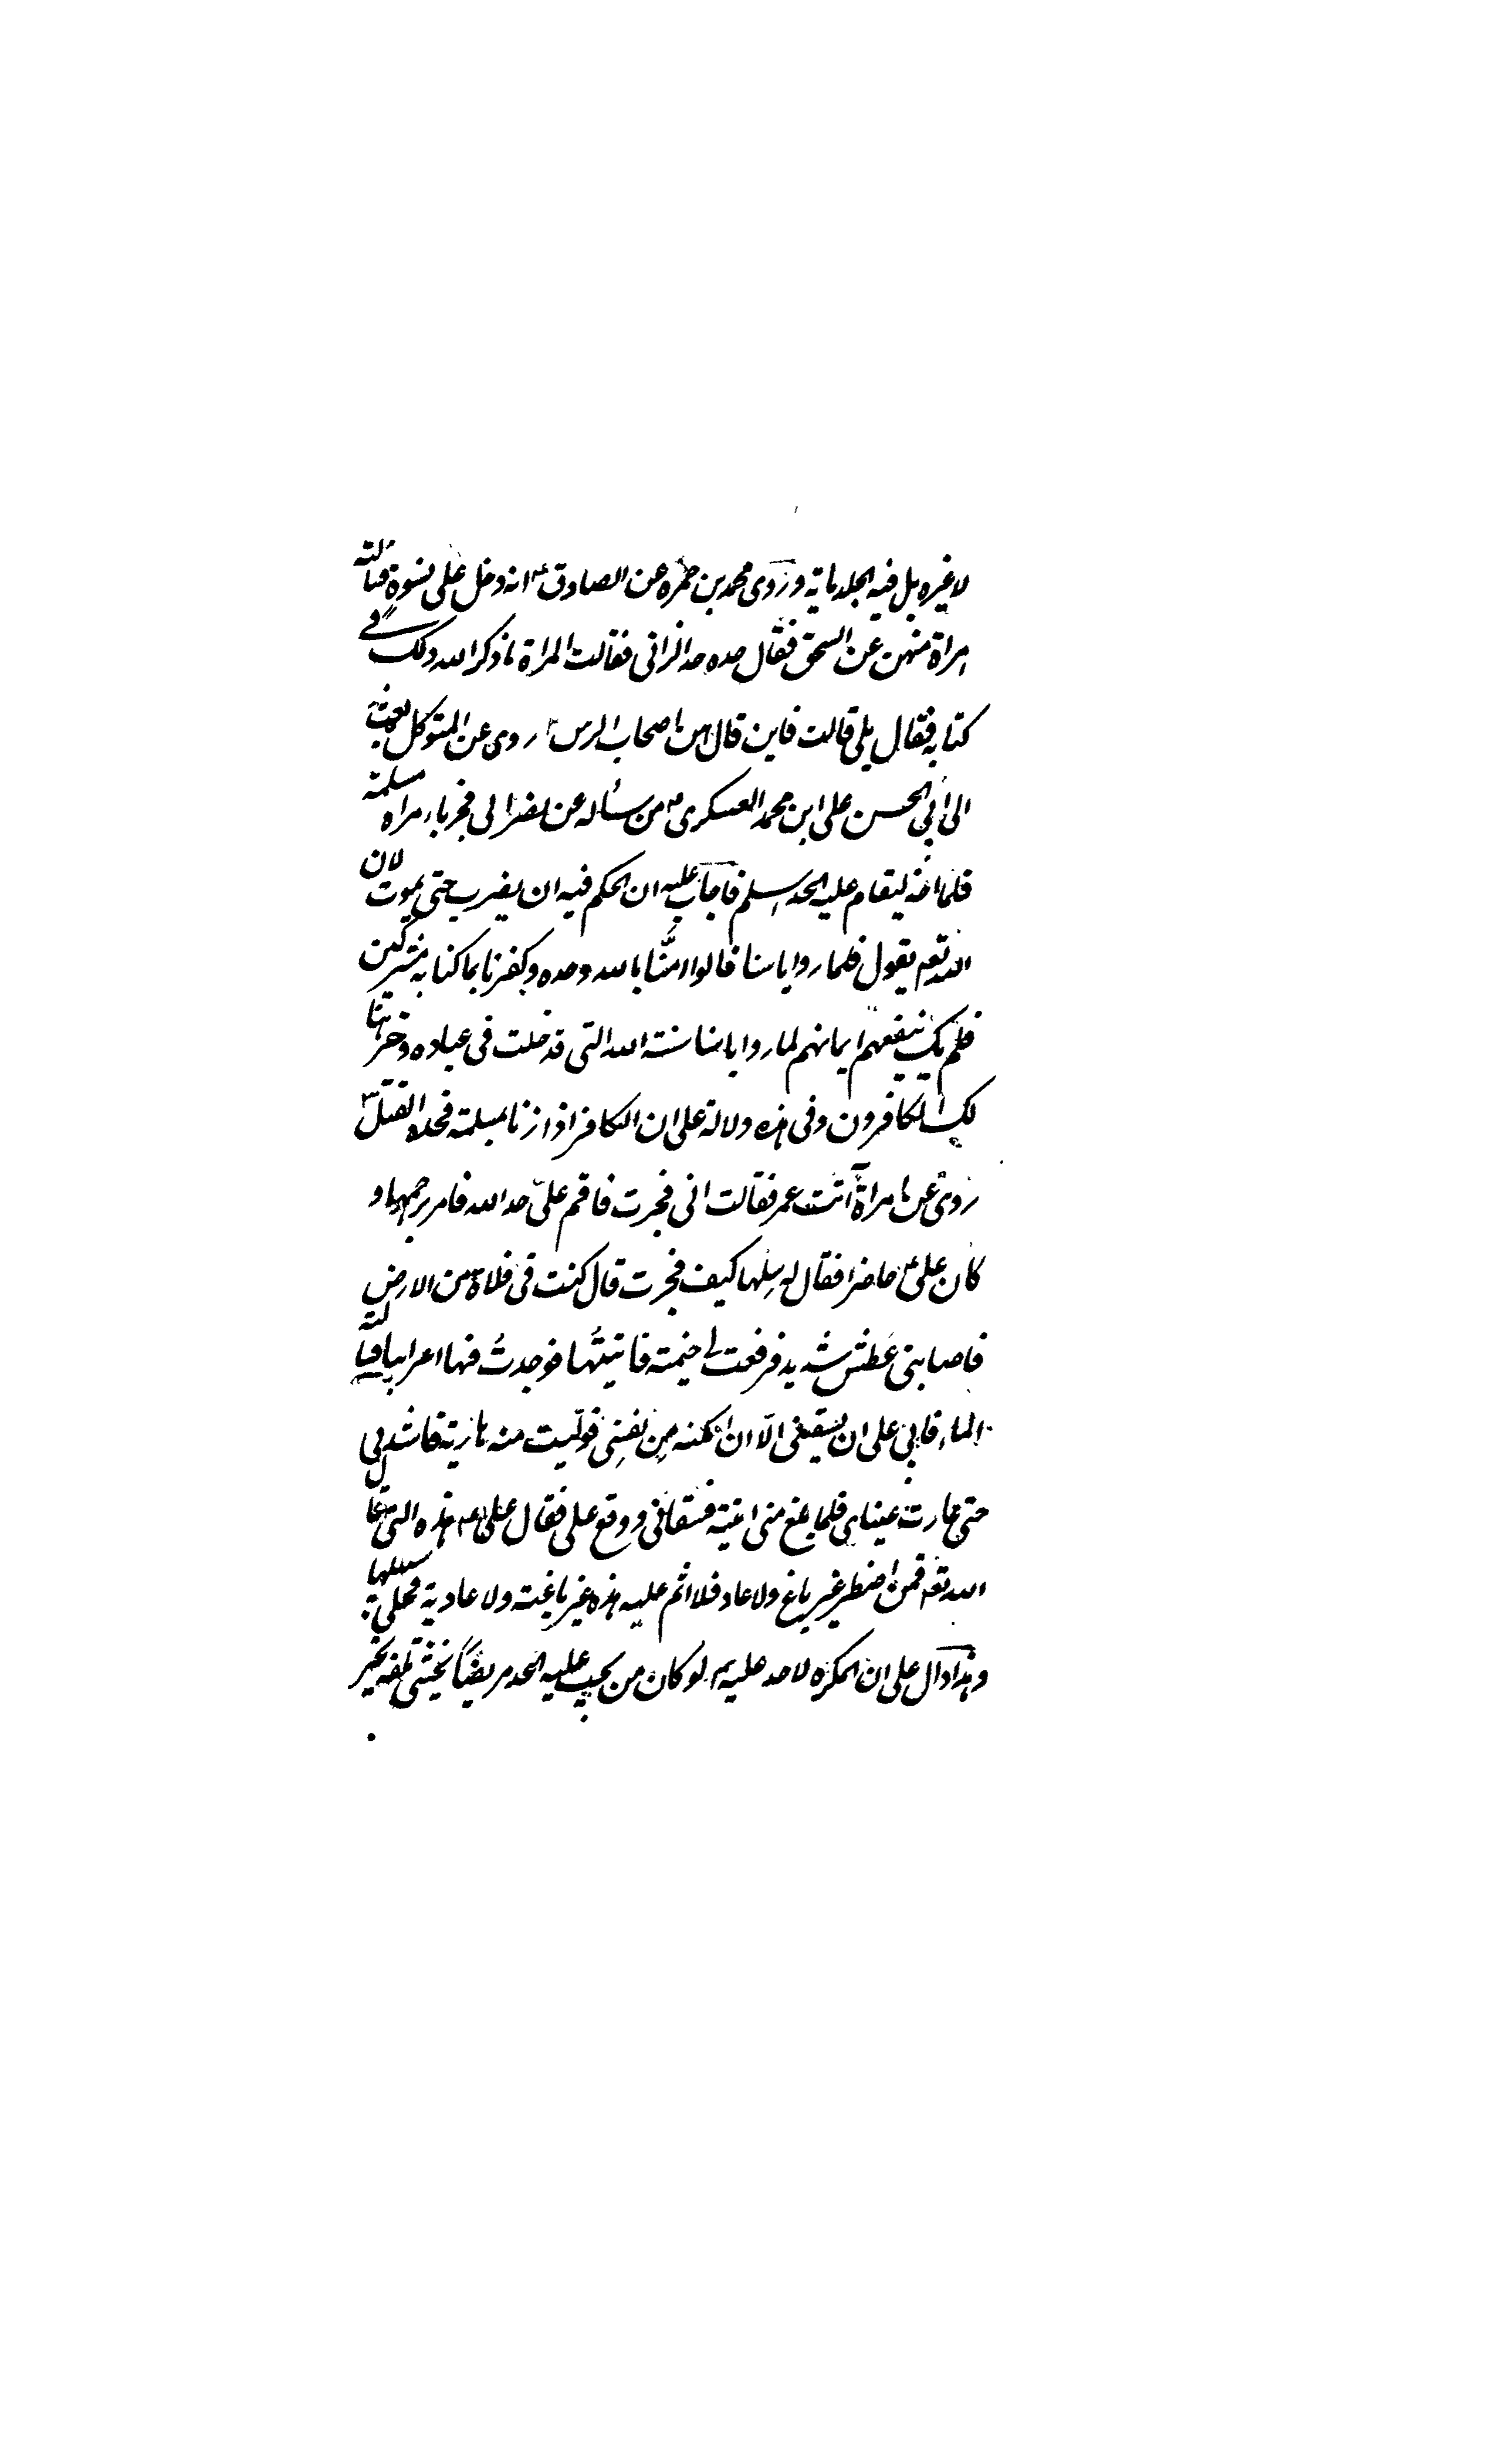 لا غيره بل فيه الجلد ماية وروى محمد بن حمزه عن الصادق ع انه دخل على نسوة فسالته
امراة منهن عن السحق فقال حده حد الزانى فقالت المراة ما ذكر الله ذلك في
كتابه فقال بلى قالت فاين قال هن اصحاب الرس روى عن المتوكل بعث
الى ابي الحسن على ابن محمد العسكرى ع من سأله عن نصرانى فجر بامراه مسلمة
فلما اخذ ليقام عليه الحد اسلم فاجاب عليه ان الحكم فيه ان يضرب حتى يموت لان
الله تعم يقول فلما روا باسنا قالوا امنّا بالله وحده وكفرنا بما كنا به مشركين
فلم يك ينفعهم ايمانهم لما روا باسنا سنة الله التى قد خلت فى عباده وخسر هنا
لك الكافرون وفى هذه دلالة على ان الكافر اذا زنا بمسلمة فحده القتل
روى عن امراة اتت عمر فقالت انى فجرت فاقم علىّ حد الله فامر برجمها و
كان على ع حاضرا فقال له سلها كيف فجرت قال كنت فى فلاة من الارض
فاصابنى عطش شديد فرفعت لي خيمة فاتيتُها فوجدتُ فيها اعرابيا فسالته
الماء فابى على ان يسقينى الّا ان امكنه من نفسِى فولّيت منه هاربة فاشتد بى
حتى غارت عيناى فلما بلغ منى اتيته فسقانى ووقع على فقال على ع هذه التى قال
الله تعم فمن اضطر غير باغ ولا عاد فلا اثم عليه هذه غير باغية ولا عادية فخلى سبيلها
وهذا دال على ان المكره لا حد عليه لو كان من يجب عليه الحد مريضًا يخشى تلفه